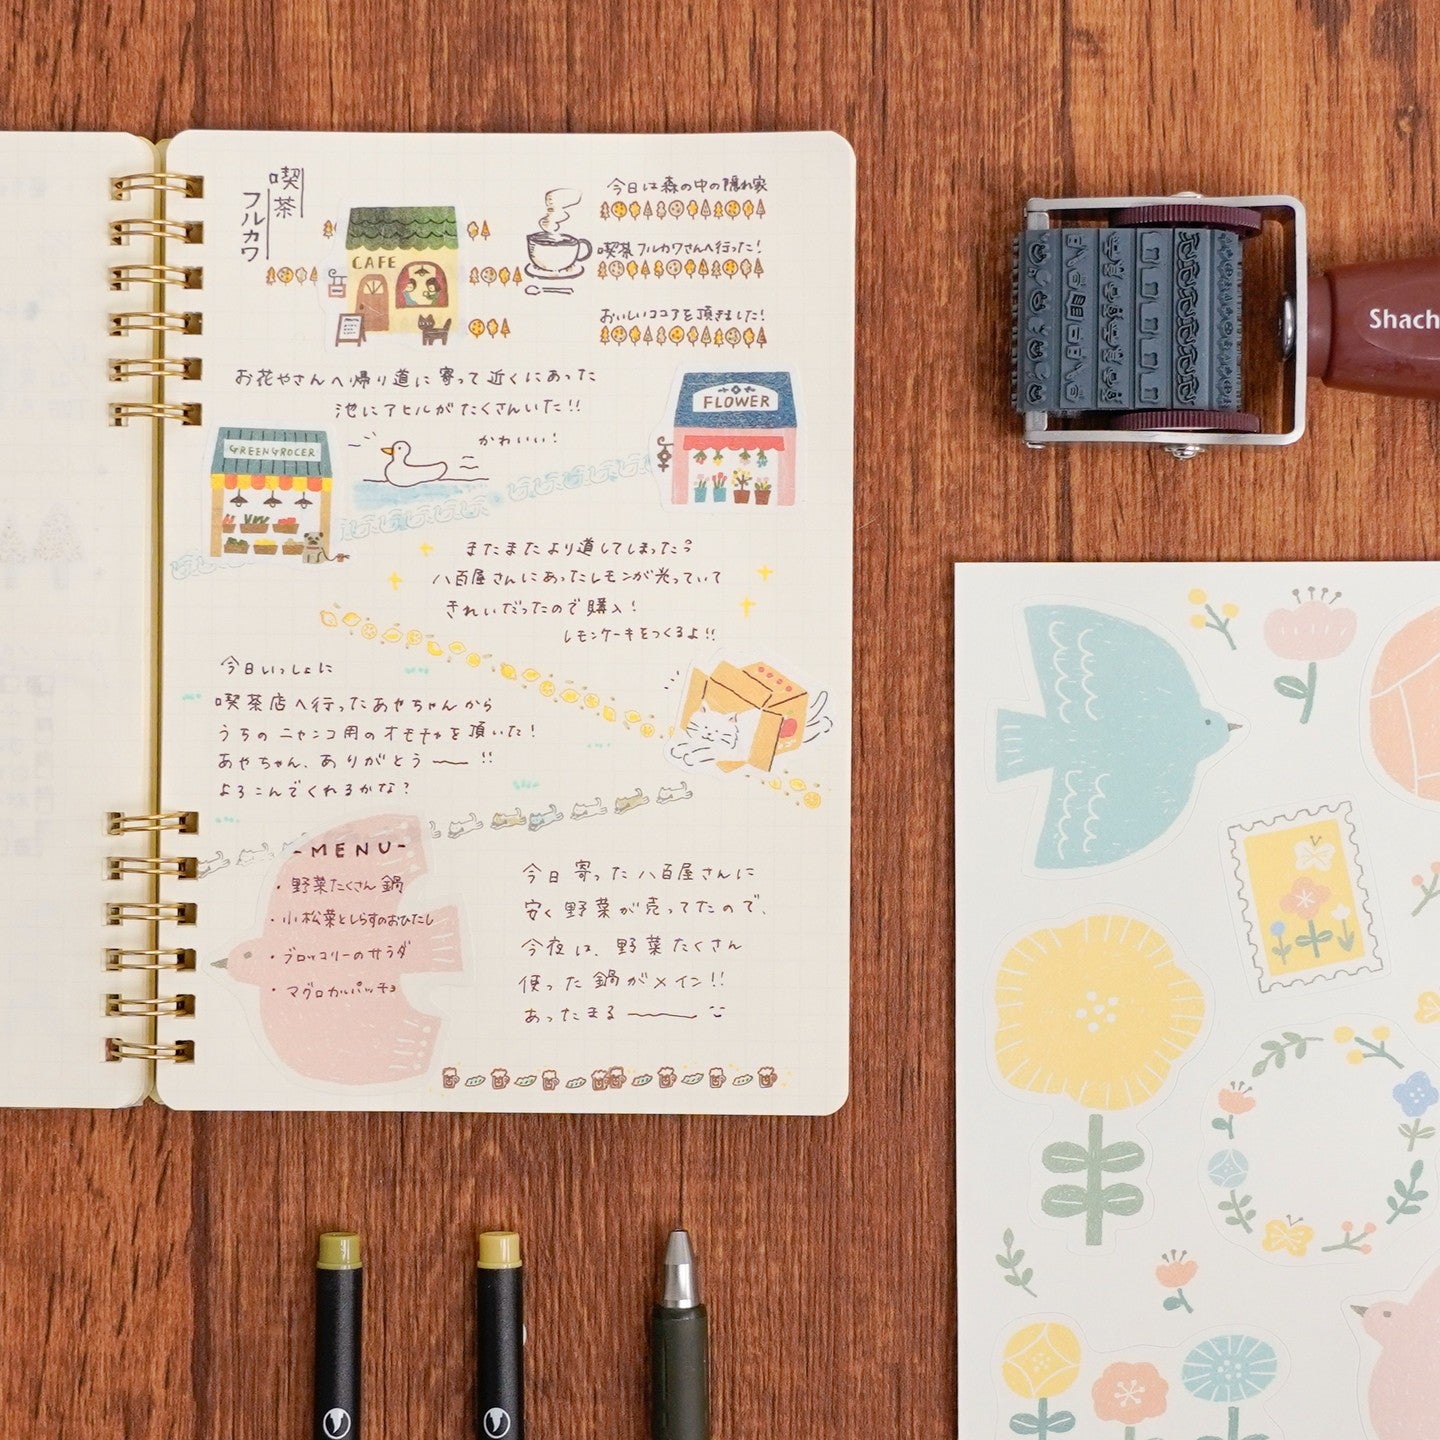 喫茶
フルカワ
CAFE
今日は森の中の隠れ家
喫茶フルカワさんへ行った!
おいしいココアを頂きました!
お花やさんへ帰り道に寄って近くにあった
池にアヒルがたくさんいた!!
かわいい!
FLOWER
GREENGROCER
またまたより道してしまった
八百屋さんにあったレモンが光っていて
きれいだったので購入!
レモンケーキをつくるよ!!
今日いっしょに
喫茶店へ行ったあやちゃんから
うちのニャンコ用のオモチャを頂いた!
あやちゃん、ありがとう〜!!
よろこんでくれるかな?
-MENU-
・野菜たくさん鍋
・小松菜としらすのおひたし
・ブロッコリーのサラダ
・マグロカルパッチョ
今日寄った八百屋さんに
安く野菜が売ってたので、
今夜は、野菜たくさん
使った鍋がメイン!!
あったまる〜
Shach